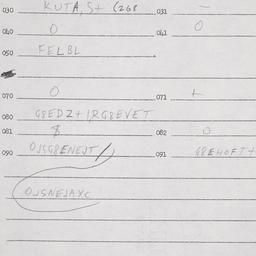 030 KUTA, S+ (268 031 —
040 0 041 0
050 FELBL
070 0 071 +
080 G8EDZ+IRG8EVET
081 $ 082 0
090 OJSG8ENEJT/ 091 G8EHOFT+
OJSNEJAXC